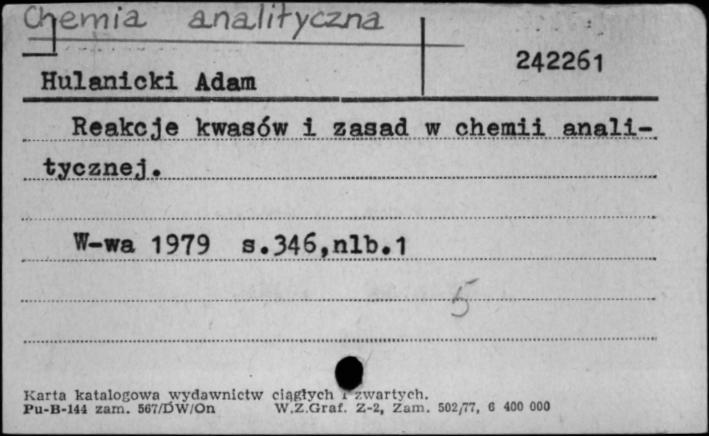 Chemia analityczna
242261
Hulanicki Adam
Reakcje kwasów i zasad w chemii anali-
tycznej.
W-wa 1979 s.346,nlb.1
5
Karta katalogowa wydawnictw ciągłych i zwartych.
Pu-B-144 zam. 567/DW/On W.Z.Graf. Z-2, Zam. 502/77, 6 400 000